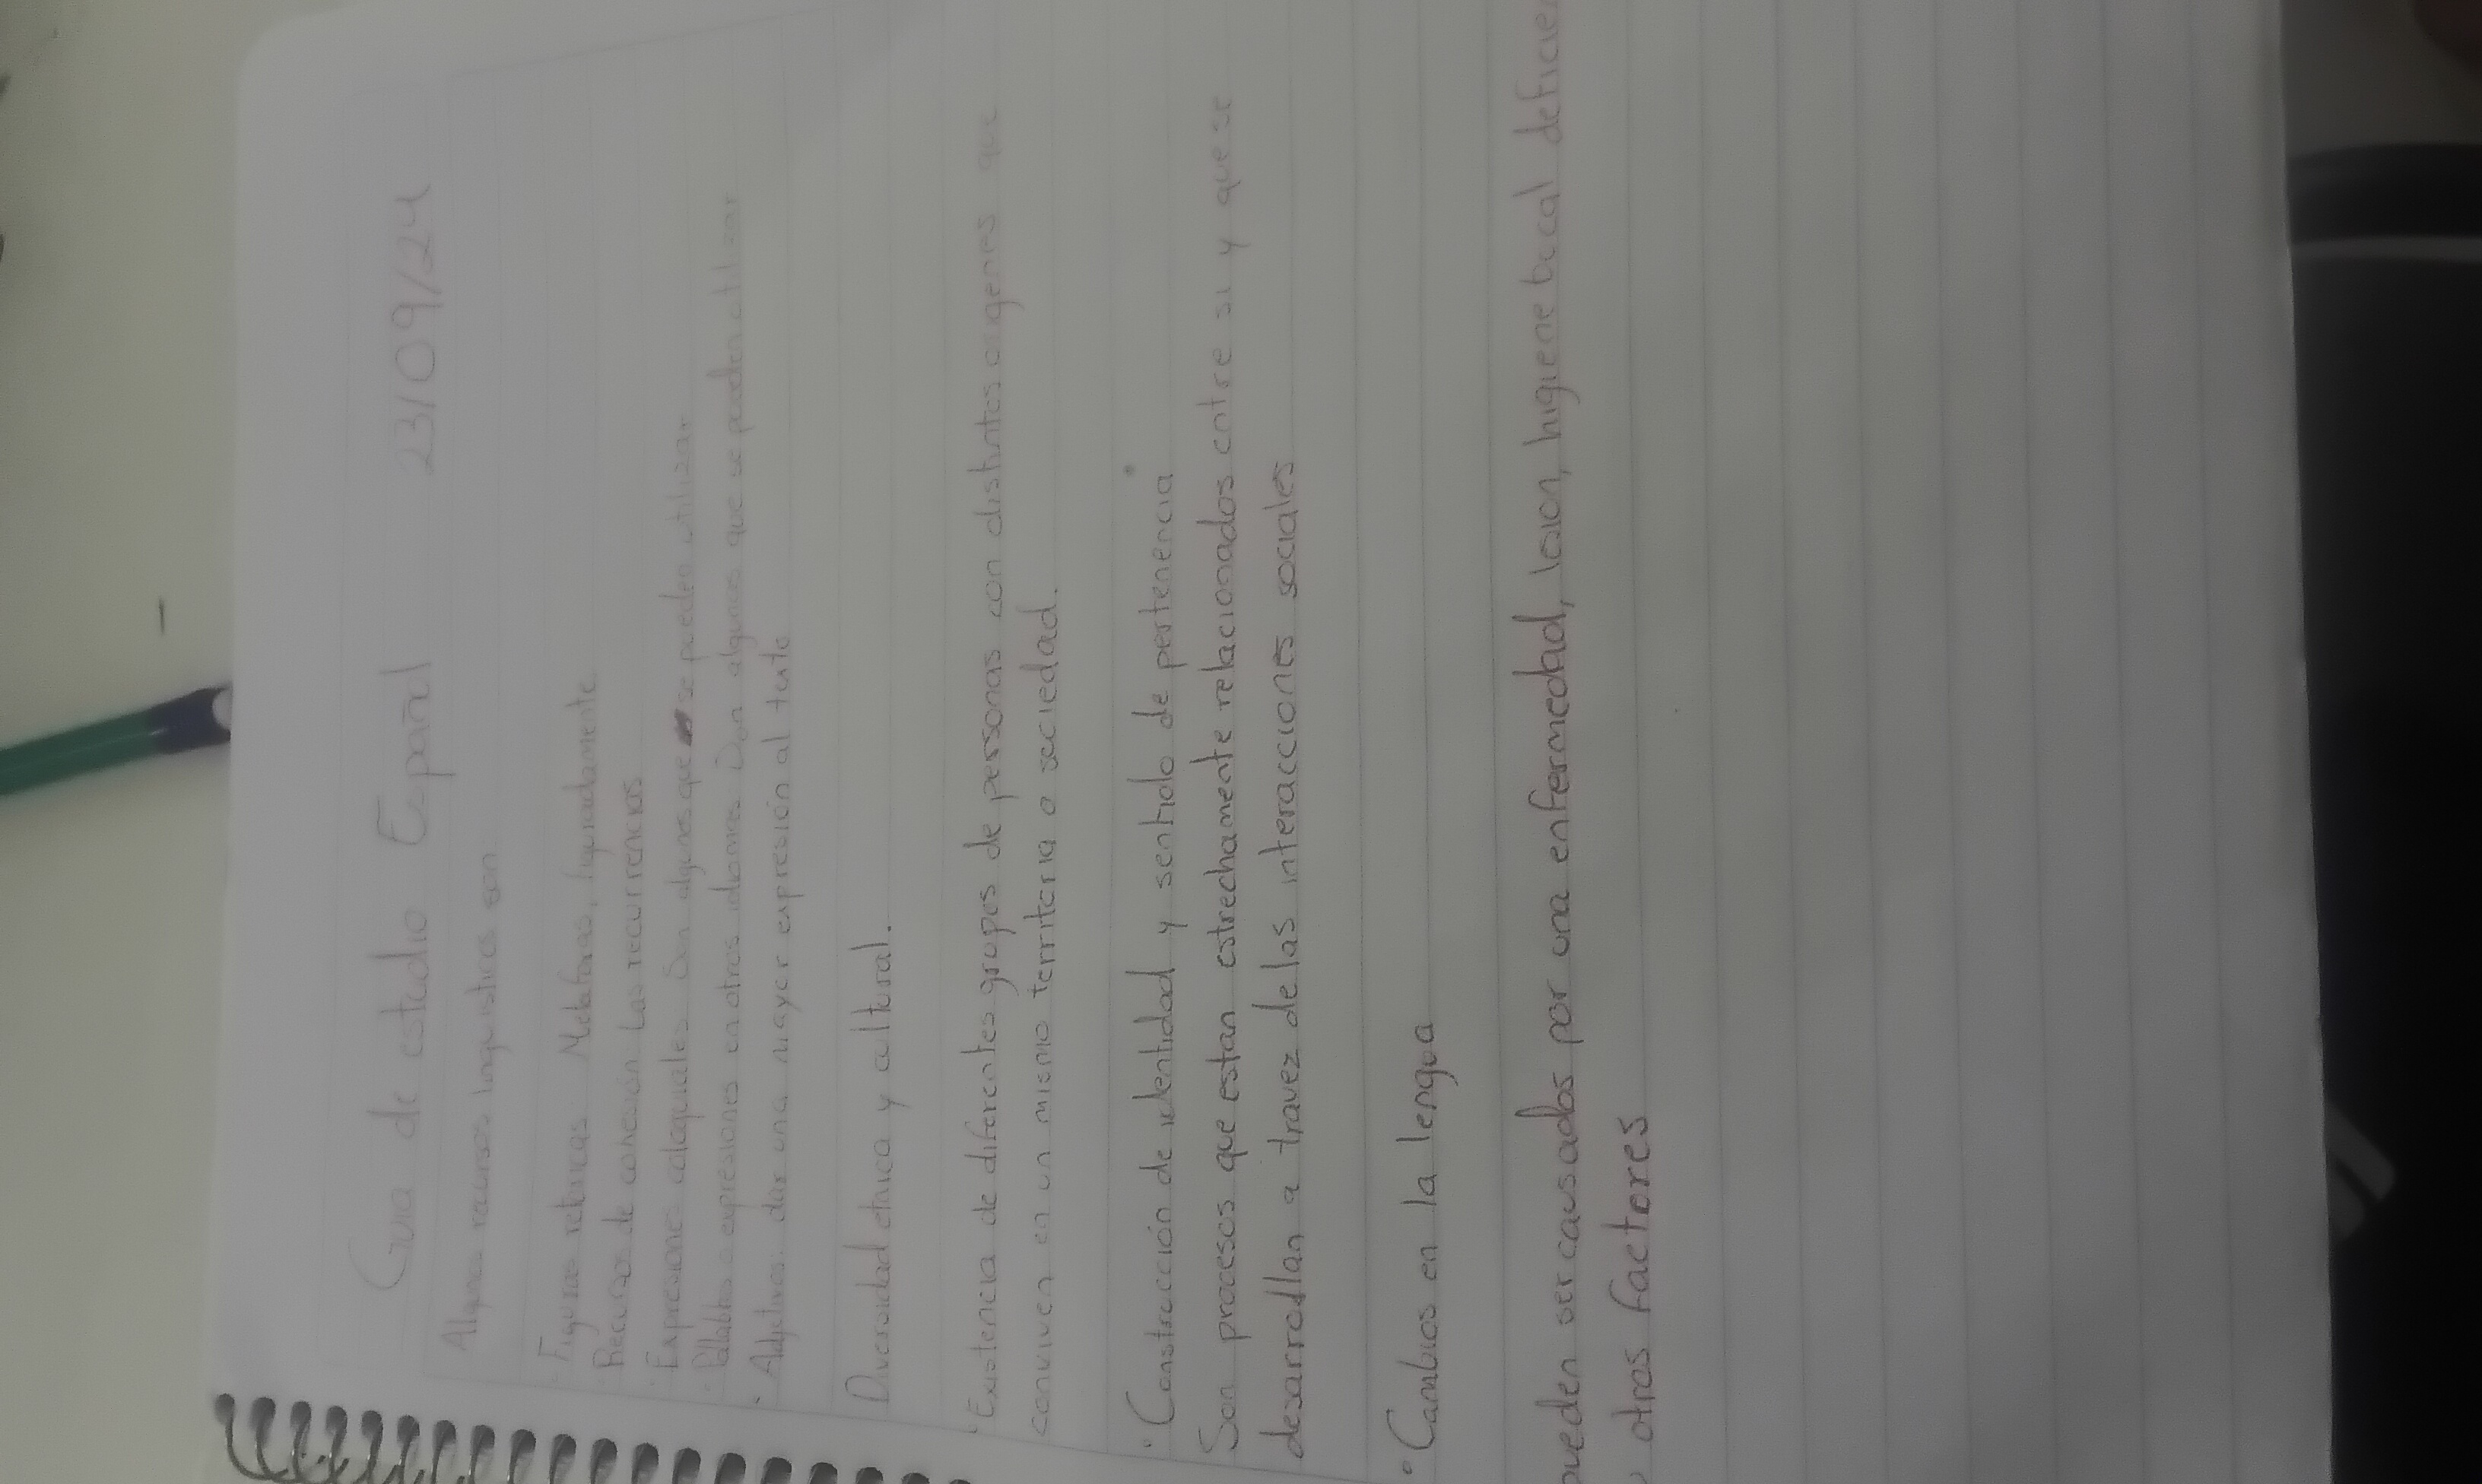 Guia de estudio Español 23/09/24
Algunos recursos linguisticos son:
· Figuras retoricas Metaforas,
· Recursos de cohesión Las recurrencias
· Expresiones coloquiales Son algunos que se pueden utilizar
· Palabras o expresiones en otros idiomas Son algunos que se pueden utilizar
· Adjetivos: dar una mayor expresión al texto
Diversidad etnica y cultural.
· Existencia de diferentes grupos de personas con distintos origenes que
conviven en un mismo territorio o sociedad.
· Construcción de identidad y sentido de pertenencia
Son procesos que estan estrechamente relacionados entre si y que se
desarrollan a travez de las interacciones sociales
· Cambios en la lengua
pueden ser causados por una enfermedad, lesion, higiene bucal deficien
u otros factores